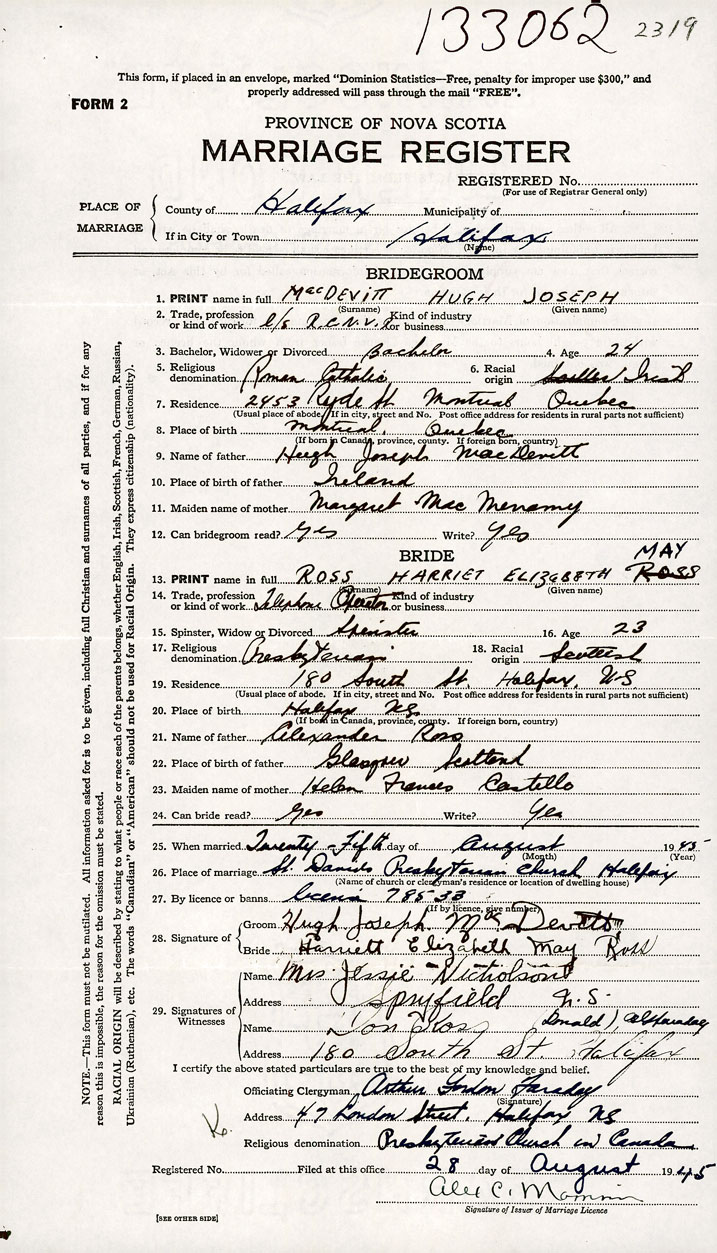 133062 2319
This form, if placed in an envelope, marked "Dominion Statistics—Free, penalty for improper use $300," and
properly addressed will pass through the mail "FREE".
FORM 2
PROVINCE OF NOVA SCOTIA
MARRIAGE REGISTER
REGISTERED No.
(For use of Registrar General only)
PLACE OF MARRIAGE
County of Halifax Municipality of
If in City or Town Halifax
(Name)
BRIDEGROOM
1. PRINT name in full MacDEVITT HUGH JOSEPH
(Surname) (Given name)
2. Trade, profession or kind of work L/S R.C.N.V.R. Kind of industry or business
3. Bachelor, Widower or Divorced Bachelor 4. Age 24
5. Religious denomination Roman Catholic 6. Racial origin Irish
7. Residence 2453 Ryde St. Montreal Quebec
(Usual place of abode. If in city, street and No. Post office address for residents in rural parts not sufficient)
8. Place of birth Montreal, Quebec
(If born in Canada, province, county. If foreign born, country)
9. Name of father Hugh Joseph MacDevitt
10. Place of birth of father Ireland
11. Maiden name of mother Margaret MacMenamy
12. Can bridegroom read? Yes Write? Yes
BRIDE
MAY
13. PRINT name in full ROSS HARRIET ELIZABETH ROSS
(Surname) (Given name)
14. Trade, profession or kind of work Telephone Operator Kind of industry or business
15. Spinster, Widow or Divorced Spinster 16. Age 23
17. Religious denomination Presbyterian 18. Racial origin Scottish
19. Residence 180 South St. Halifax, N.S.
(Usual place of abode. If in city, street and No. Post office address for residents in rural parts not sufficient)
20. Place of birth Halifax N.S.
(If born in Canada, province, county. If foreign born, country)
21. Name of father Alexander Ross
22. Place of birth of father Glasgow Scotland
23. Maiden name of mother Helen Frances Costello
24. Can bride read? Yes Write? Yes
25. When married Twenty-Fifth day of August 1945
(Month) (Year)
26. Place of marriage St. Davids Presbyterian Church Halifax
(Name of church or clergyman's residence or location of dwelling house)
27. By licence or banns licence 78533
(If by licence, give number)
28. Signature of
Groom Hugh Joseph MacDevitt
Bride Harriett Elizabeth May Ross
29. Signatures of Witnesses
Name Mrs. Jessie Nicholson
Address Spryfield N.S.
Name Don Ross (Donald)
Address 180 South St. Halifax
I certify the above stated particulars are true to the best of my knowledge and belief.
Officiating Clergyman Arthur Gordon Faraday
(Signature)
Address 47 London Street, Halifax NS
Religious denomination Presbyterian Church in Canada
Registered No. Filed at this office 28 day of August 1945
Signature of Issuer of Marriage Licence
[SEE OTHER SIDE]
NOTE.—This form must not be mutilated. All information asked for is to be given, including full Christian and surnames of all parties, and if for any
reason this is impossible, the reason for the omission must be stated.
RACIAL ORIGIN will be described by stating to what people or race each of the parents belongs, whether English, Irish, Scottish, French, German, Russian,
Ukrainian (Ruthenian), etc. The words "Canadian" or "American" should not be used for Racial Origin. They express citizenship (nationality).